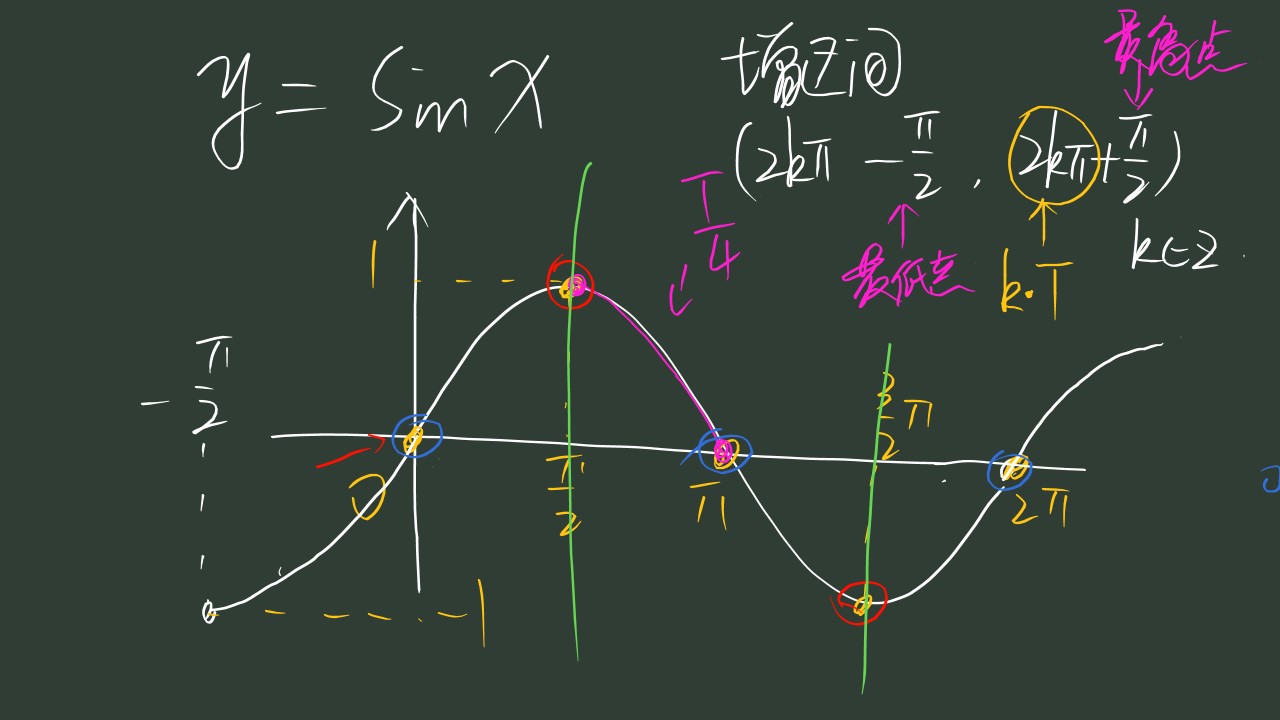 y = sin x
增区间
最高点
(2kπ - π/2 , 2kπ + π/2)
k∈Z
最低点
k·T
T/4
1
-π/2
0
π/2
π
3/2 π
2π
-1